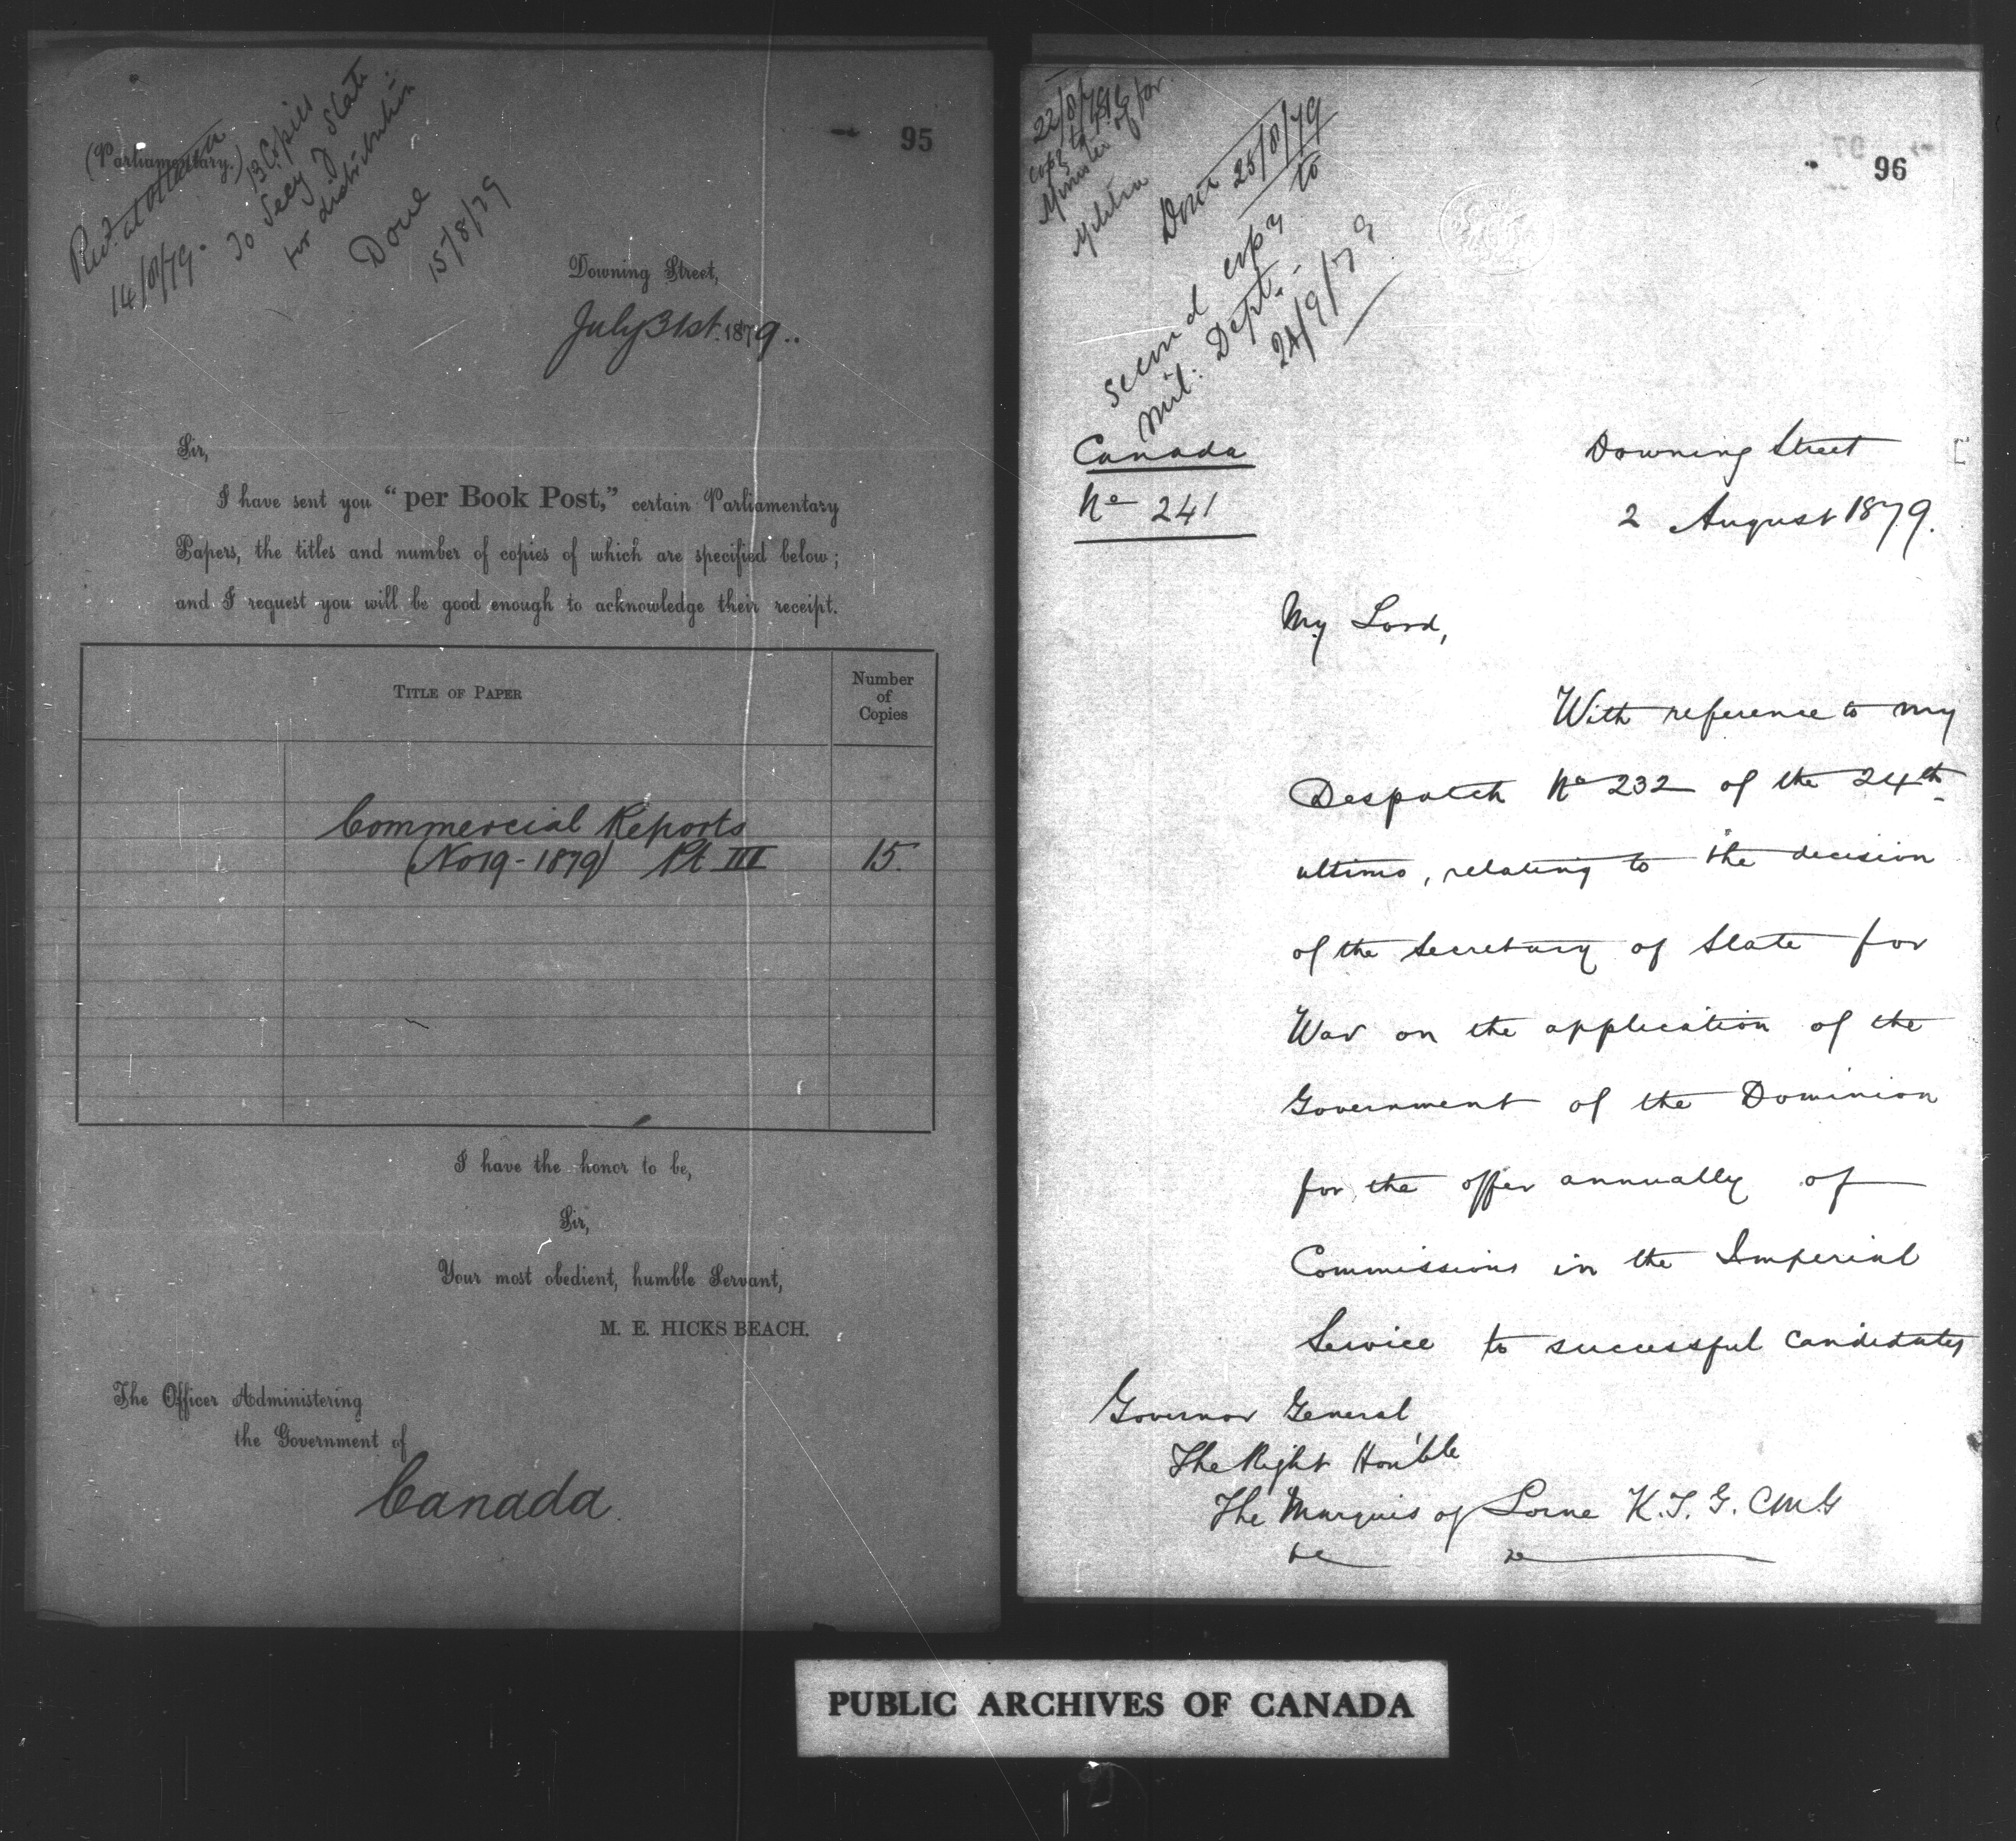 95
(Parliamentary.)
Rec'd at Ottawa
14/8/79.
13 Copies
To Secy of State
for distribution
Done
15/8/79
Downing Street,
July 31st 1879..
Sir,
I have sent you "per Book Post," certain Parliamentary
Papers, the titles and number of copies of which are specified below;
and I request you will be good enough to acknowledge their receipt.
TITLE OF PAPER
Number
of
Copies
Commercial Reports
(No 19 - 1879) Pt III 15.
I have the honor to be,
Sir,
Your most obedient, humble Servant,
M. E. HICKS BEACH.
The Officer Administering
the Government of
Canada.
96
22/8/79
Copy to
Minister of
Militia
Done 25/8/79
second copy to
Mil: Dept.
24/9/79
Canada
No 241
Downing Street
2 August 1879.
My Lord,
With reference to my
Despatch No 232 of the 24th
ultimo, relating to the decision
of the Secretary of State for
War on the application of the
Government of the Dominion
for the offer annually of
Commissions in the Imperial
Service to successful candidates
Governor General
The Right Hon'ble
The Marquis of Lorne K.T. G.CMG
&c &c
PUBLIC ARCHIVES OF CANADA